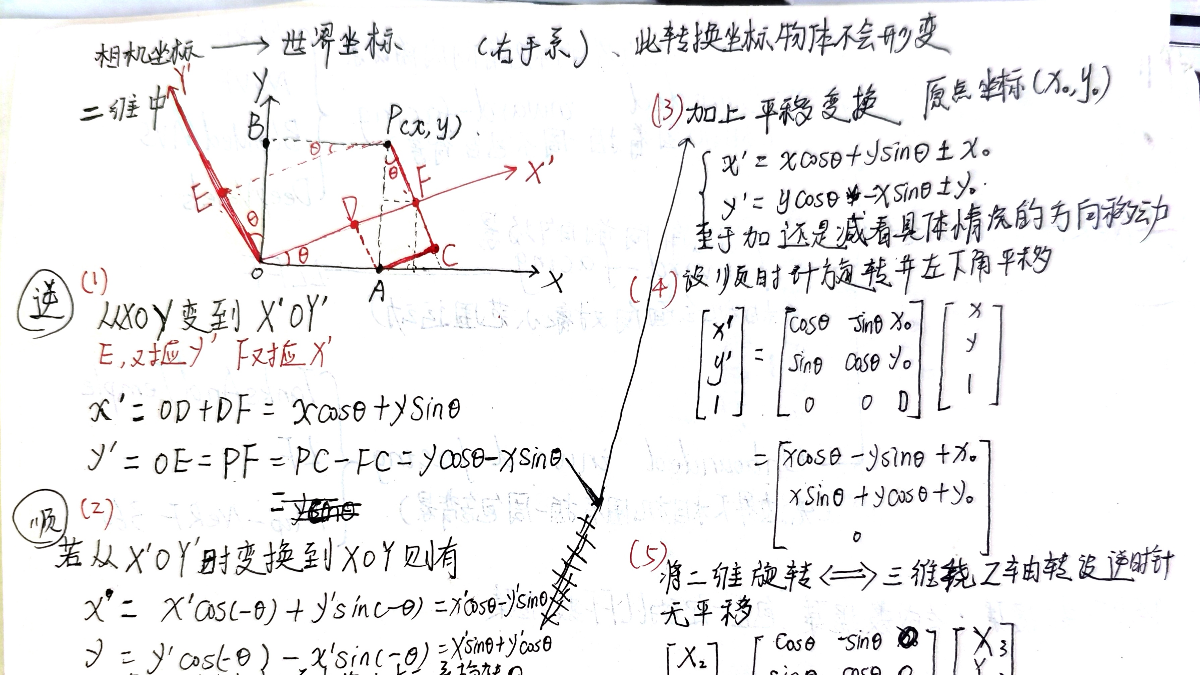 相机坐标 → 世界坐标 (右手系)、此转换坐标物体不会形变
二维中
Y'
Y
B
P(x,y)
θ
θ
E
F
X'
D
θ
θ
C
O
A
X
逆
(1)
从XOY变到X'OY'
E,对应y' F对应X'
x' = OD+DF = xcosθ+ysinθ
y' = OE=PF=PC-FC=ycosθ-xsinθ
=
顺
(2)
若从X'OY'时变换到XOY则有
x = x'cos(-θ)+y'sin(-θ)=x'cosθ-y'sinθ
y = y'cos(-θ)-x'sin(-θ)=x'sinθ+y'cosθ
(3)加上平移变换 原点坐标(x₀,y₀)
x' = xcosθ+ysinθ±x₀
y' = ycosθ-xsinθ±y₀.
至于加还是减看具体情况的方向移动
(4)设顺时针旋转并左下角平移
[x'] = [cosθ -sinθ x₀] [x]
[y'] [sinθ cosθ y₀] [y]
[1] [0 0 0] [1]
= [xcosθ-ysinθ+x₀]
[xsinθ+ycosθ+y₀]
[0]
(5)将二维旋转⟺三维绕Z轴转设逆时针
无平移
[X₂ [cosθ -sinθ ] [X₃]